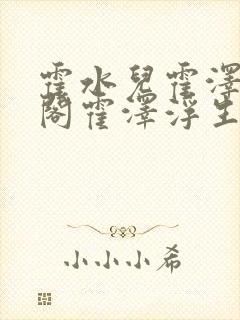 霍水兒霍澤
閣霍澤浮生
小小小希